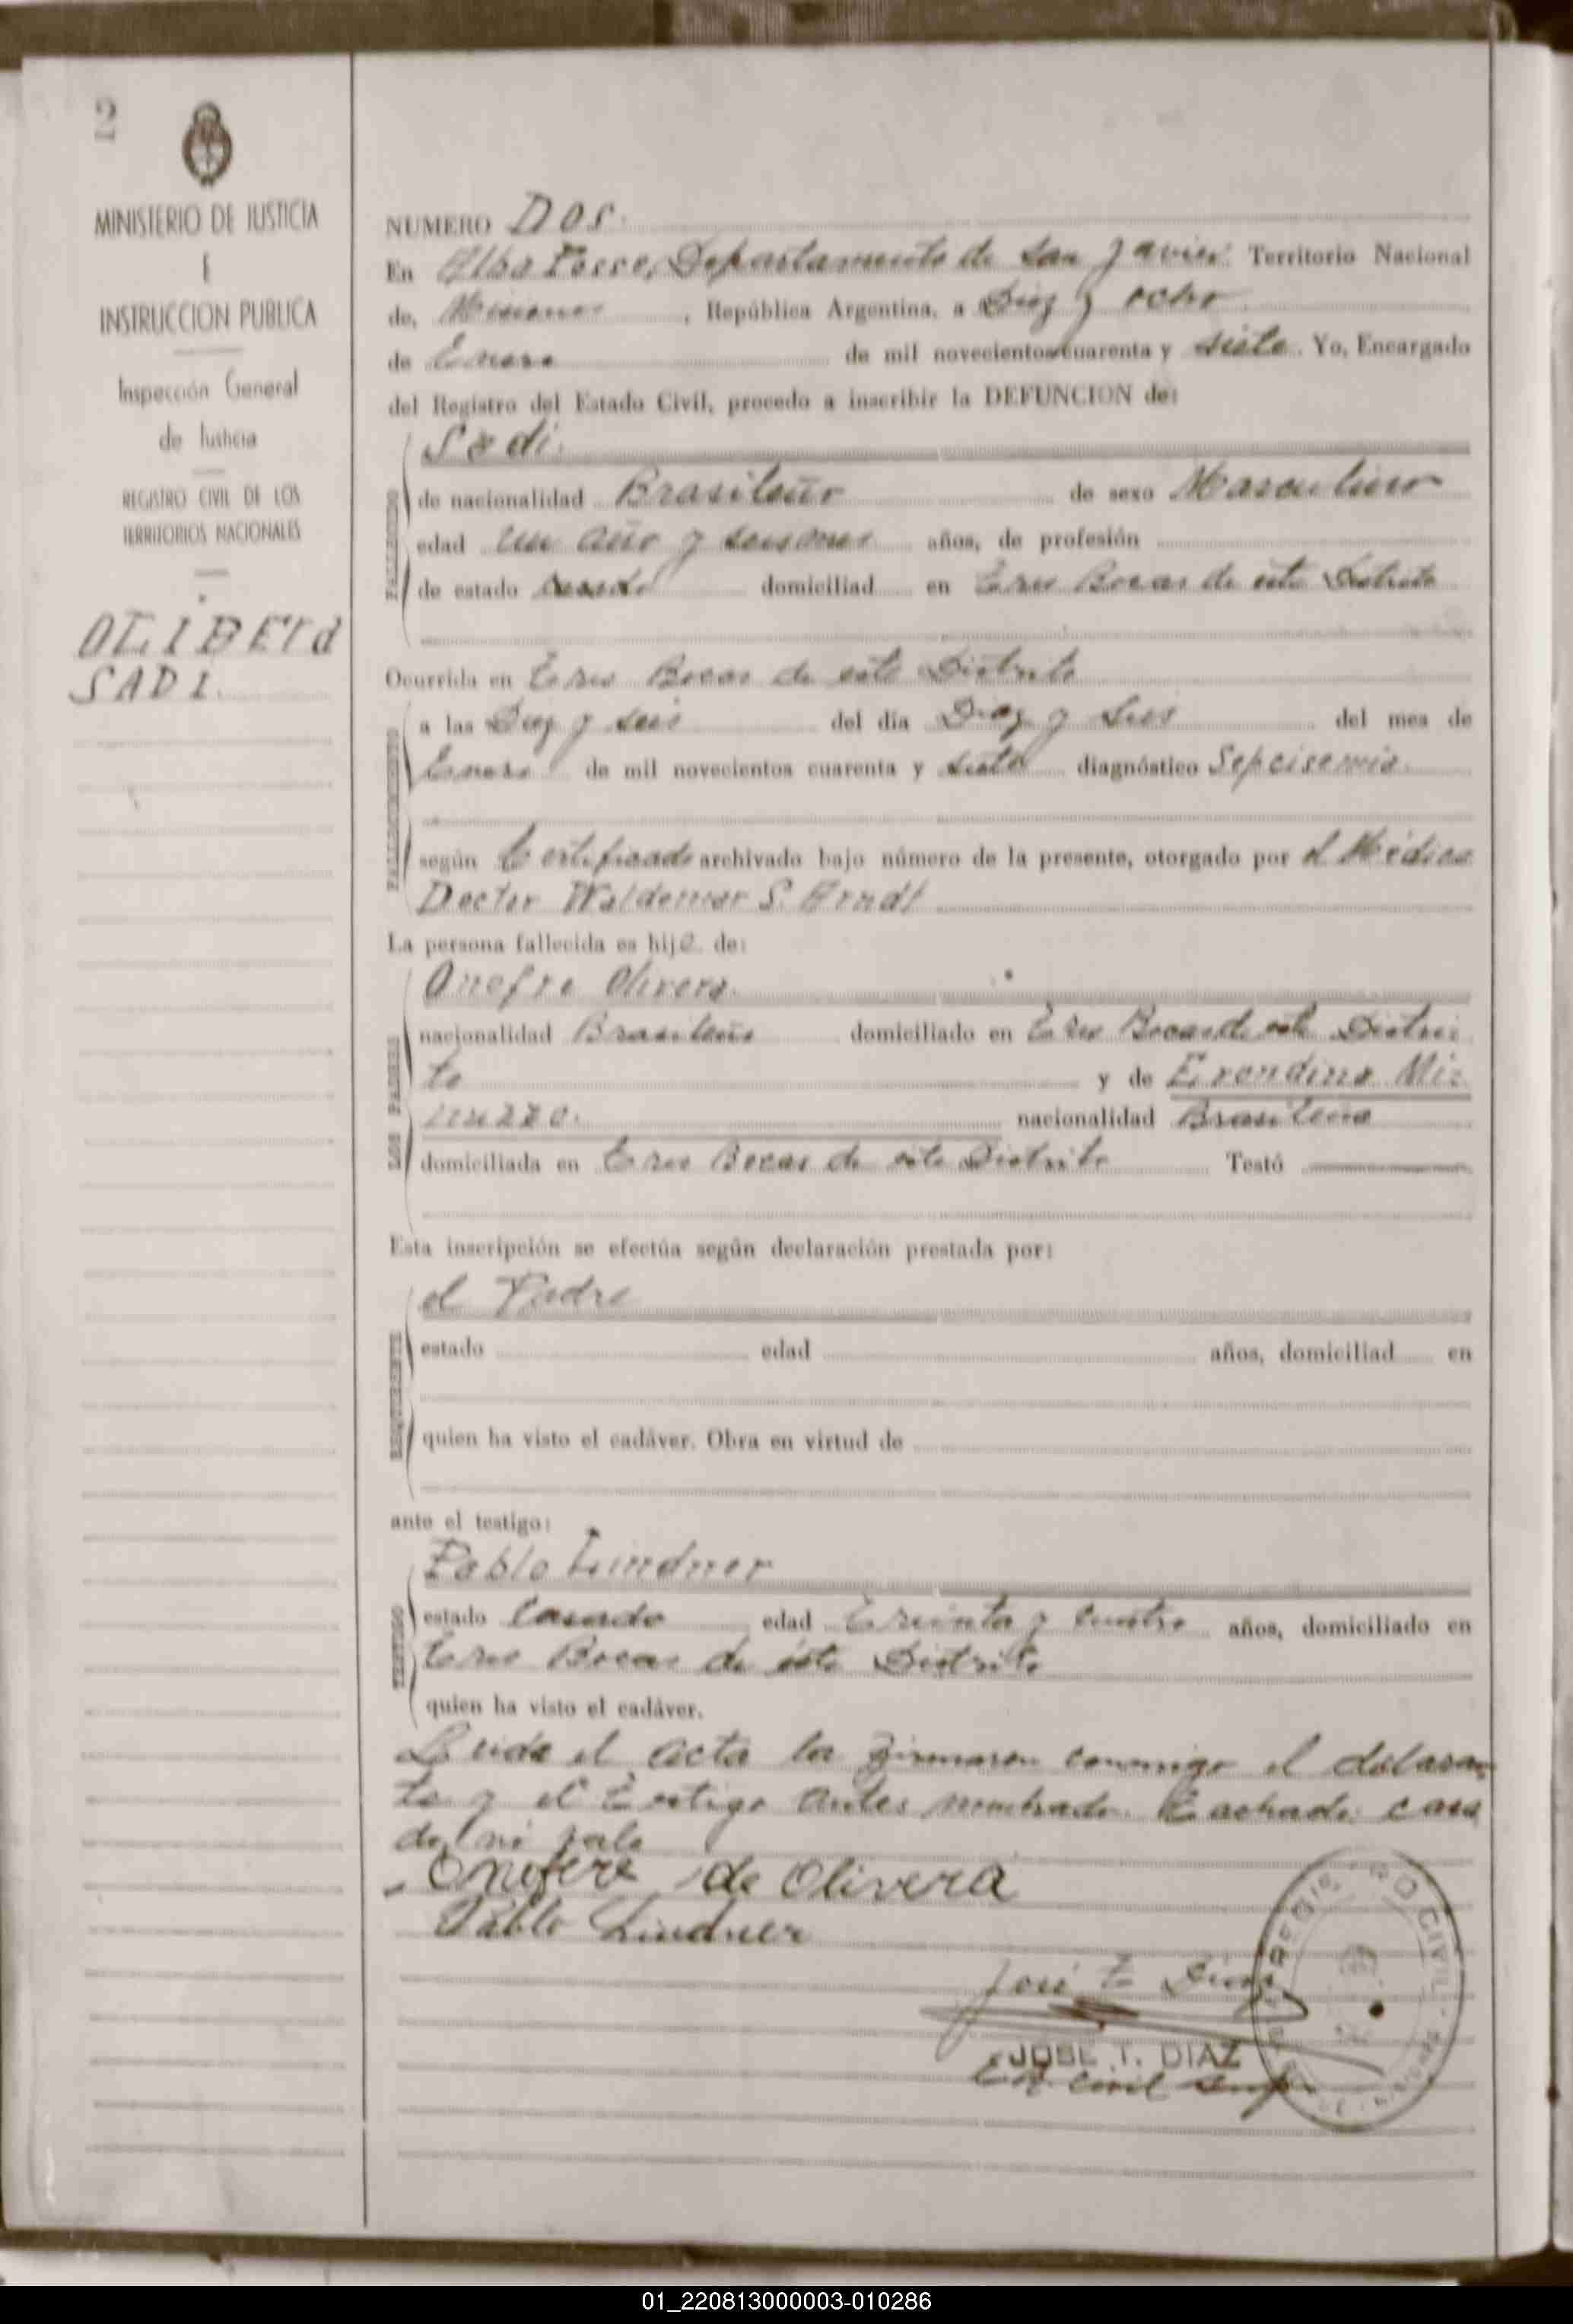 2
MINISTERIO DE JUSTICIA
E
INSTRUCCION PUBLICA
Inspección General
de Justicia
REGISTRO CIVIL DE LOS
TERRITORIOS NACIONALES
OLIBERA
SADI.
NUMERO Dos.
En Alba Posse, Departamento de San Javier Territorio Nacional
de, Misiones , República Argentina, a Diez y ocho
de Enero de mil novecientos cuarenta y siete. Yo, Encargado
del Registro del Estado Civil, procedo a inscribir la DEFUNCION de:
Sadi.
FALLECIDO
de nacionalidad Brasileño de sexo Masculino
edad un año y seis meses años, de profesión
de estado casado domiciliad en Tres Bocas de este Distrito
Ocurrida en Tres Bocas de este Distrito
FALLECIMIENTO
a las Diez y seis del día Diez y seis del mes de
Enero de mil novecientos cuarenta y siete diagnóstico Sepcisemia.
según Certificado archivado bajo número de la presente, otorgado por el Médico
Doctor Waldemar S. Arndt
La persona fallecida es hijo de:
Onofre Olivera.
LOS PADRES
nacionalidad Brasileño domiciliado en Tres Bocas de este Distri-
to y de Erondina
nacionalidad Brasileña
domiciliada en Tres Bocas de este Distrito Testó
Esta inscripción se efectúa según declaración prestada por:
el Padre
REQUIRENTE
estado edad años, domiciliad en
quien ha visto el cadáver. Obra en virtud de
ante el testigo:
Pablo Lindner
TESTIGO
estado Casado edad Treinta y cuatro años, domiciliado en
Tres Bocas de éste Distrito
quien ha visto el cadáver.
Leida el acta la firmaron conmigo el delaran-
te y el Testigo antes nombrado. Tachado: casa
do, no vale
Onofere de Olivera
Pablo Lindner
José T. Diaz
JOSE T. DIAZ
REGISTRO CIVIL
01_220813000003-010286